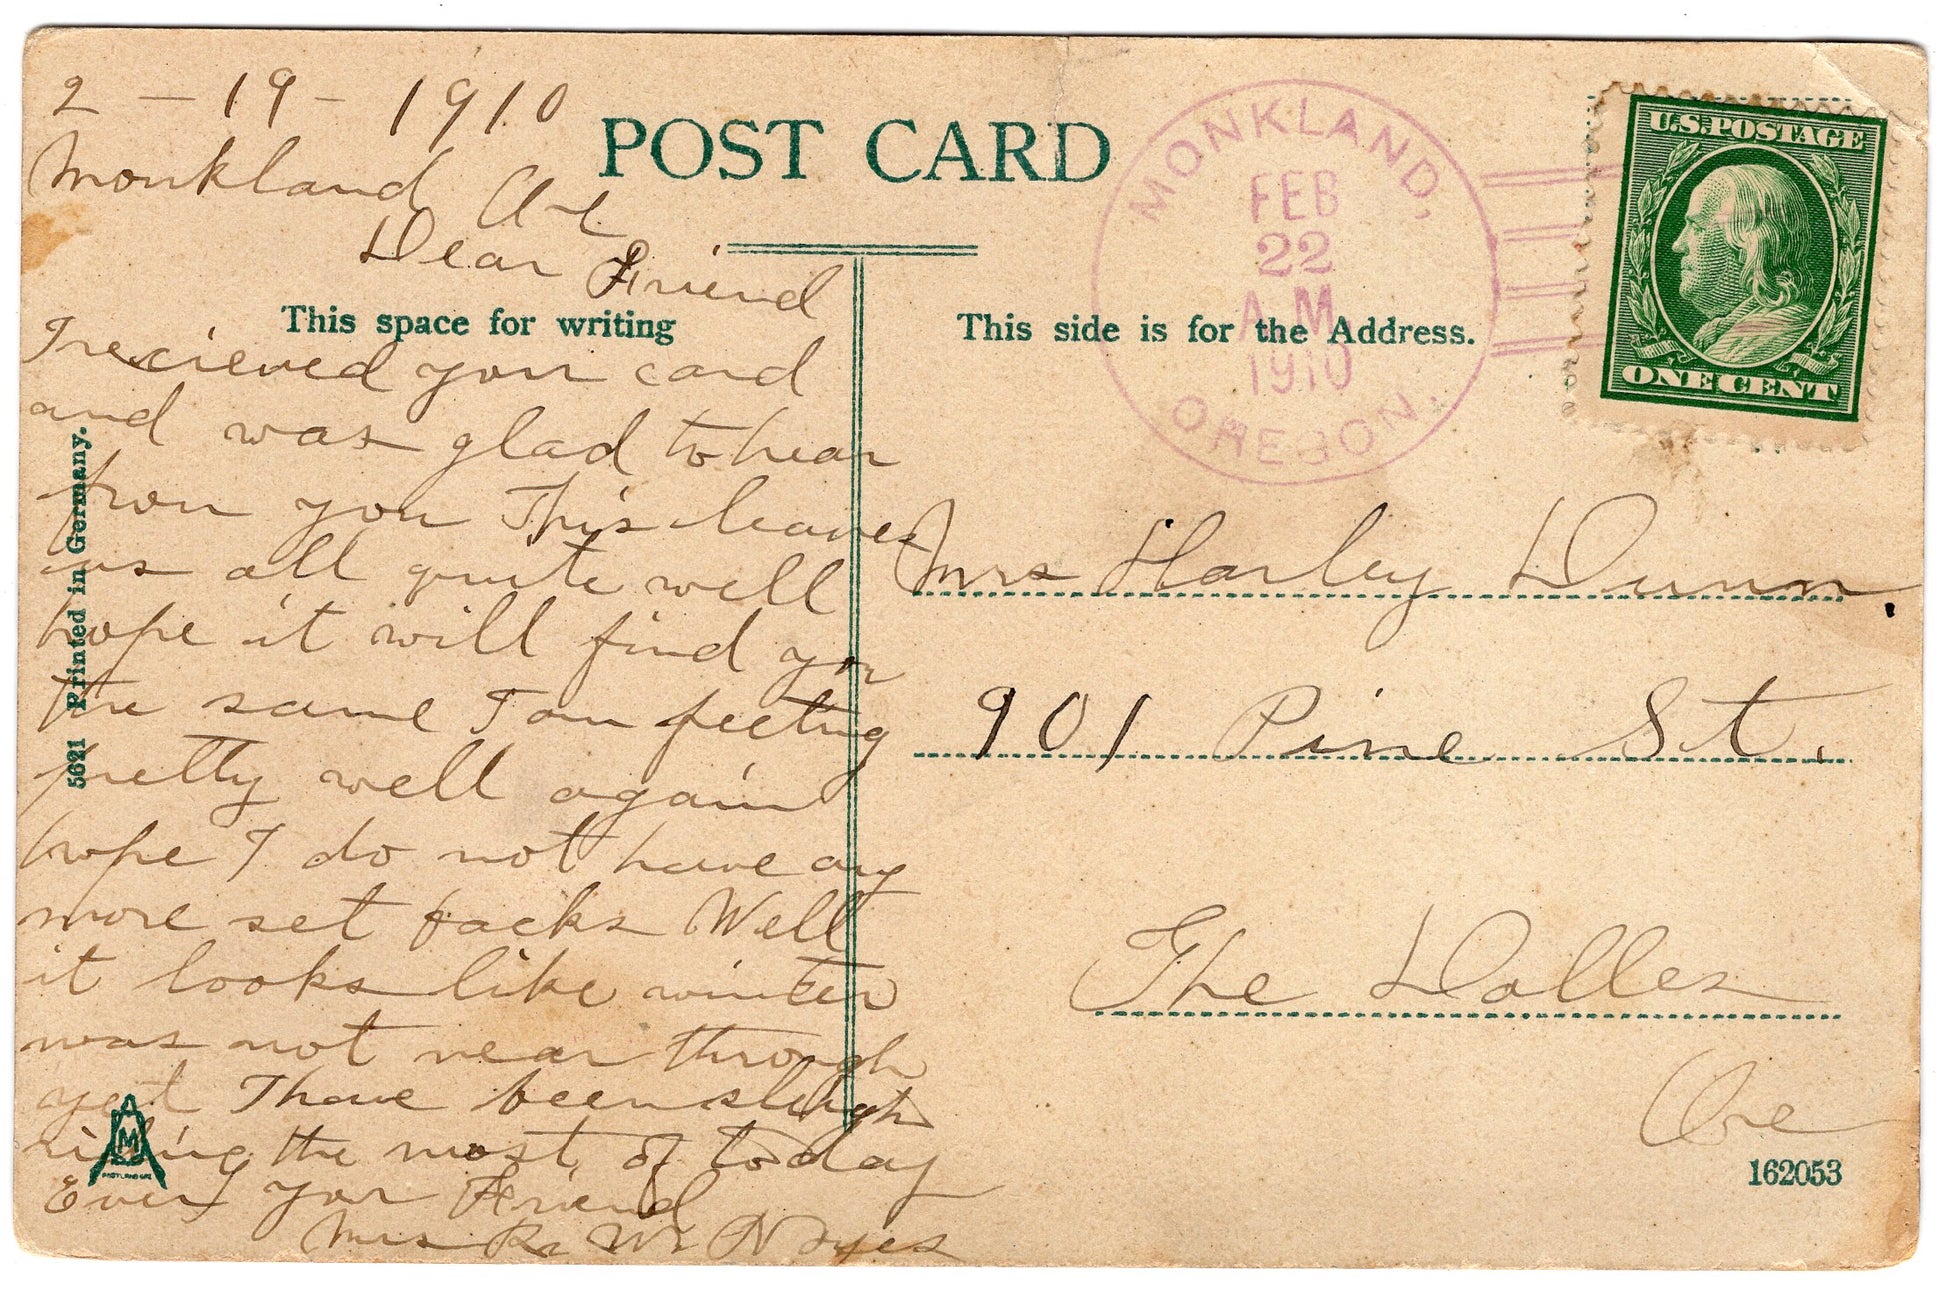 2 - 19 - 1910
Monkland Ore
Dear Friend
I recieved your card
and was glad to hear
from you This leaves
us all quite well
hope it will find you
the same I am feeling
pretty well again
hope I do not have any
more set backs Well
it looks like winter
was not near through
yet I have been sleigh
riding the most of today
Every your Friend
Mrs R. W. Noyes
POST CARD
This space for writing
This side is for the Address.
5621 Printed in Germany.
M
MONKLAND,
FEB
22
A.M.
1910
OREGON.
U.S. POSTAGE
ONE CENT
Mrs Harley Dunn.
901 Pine St.
The Dalles
Ore
162053